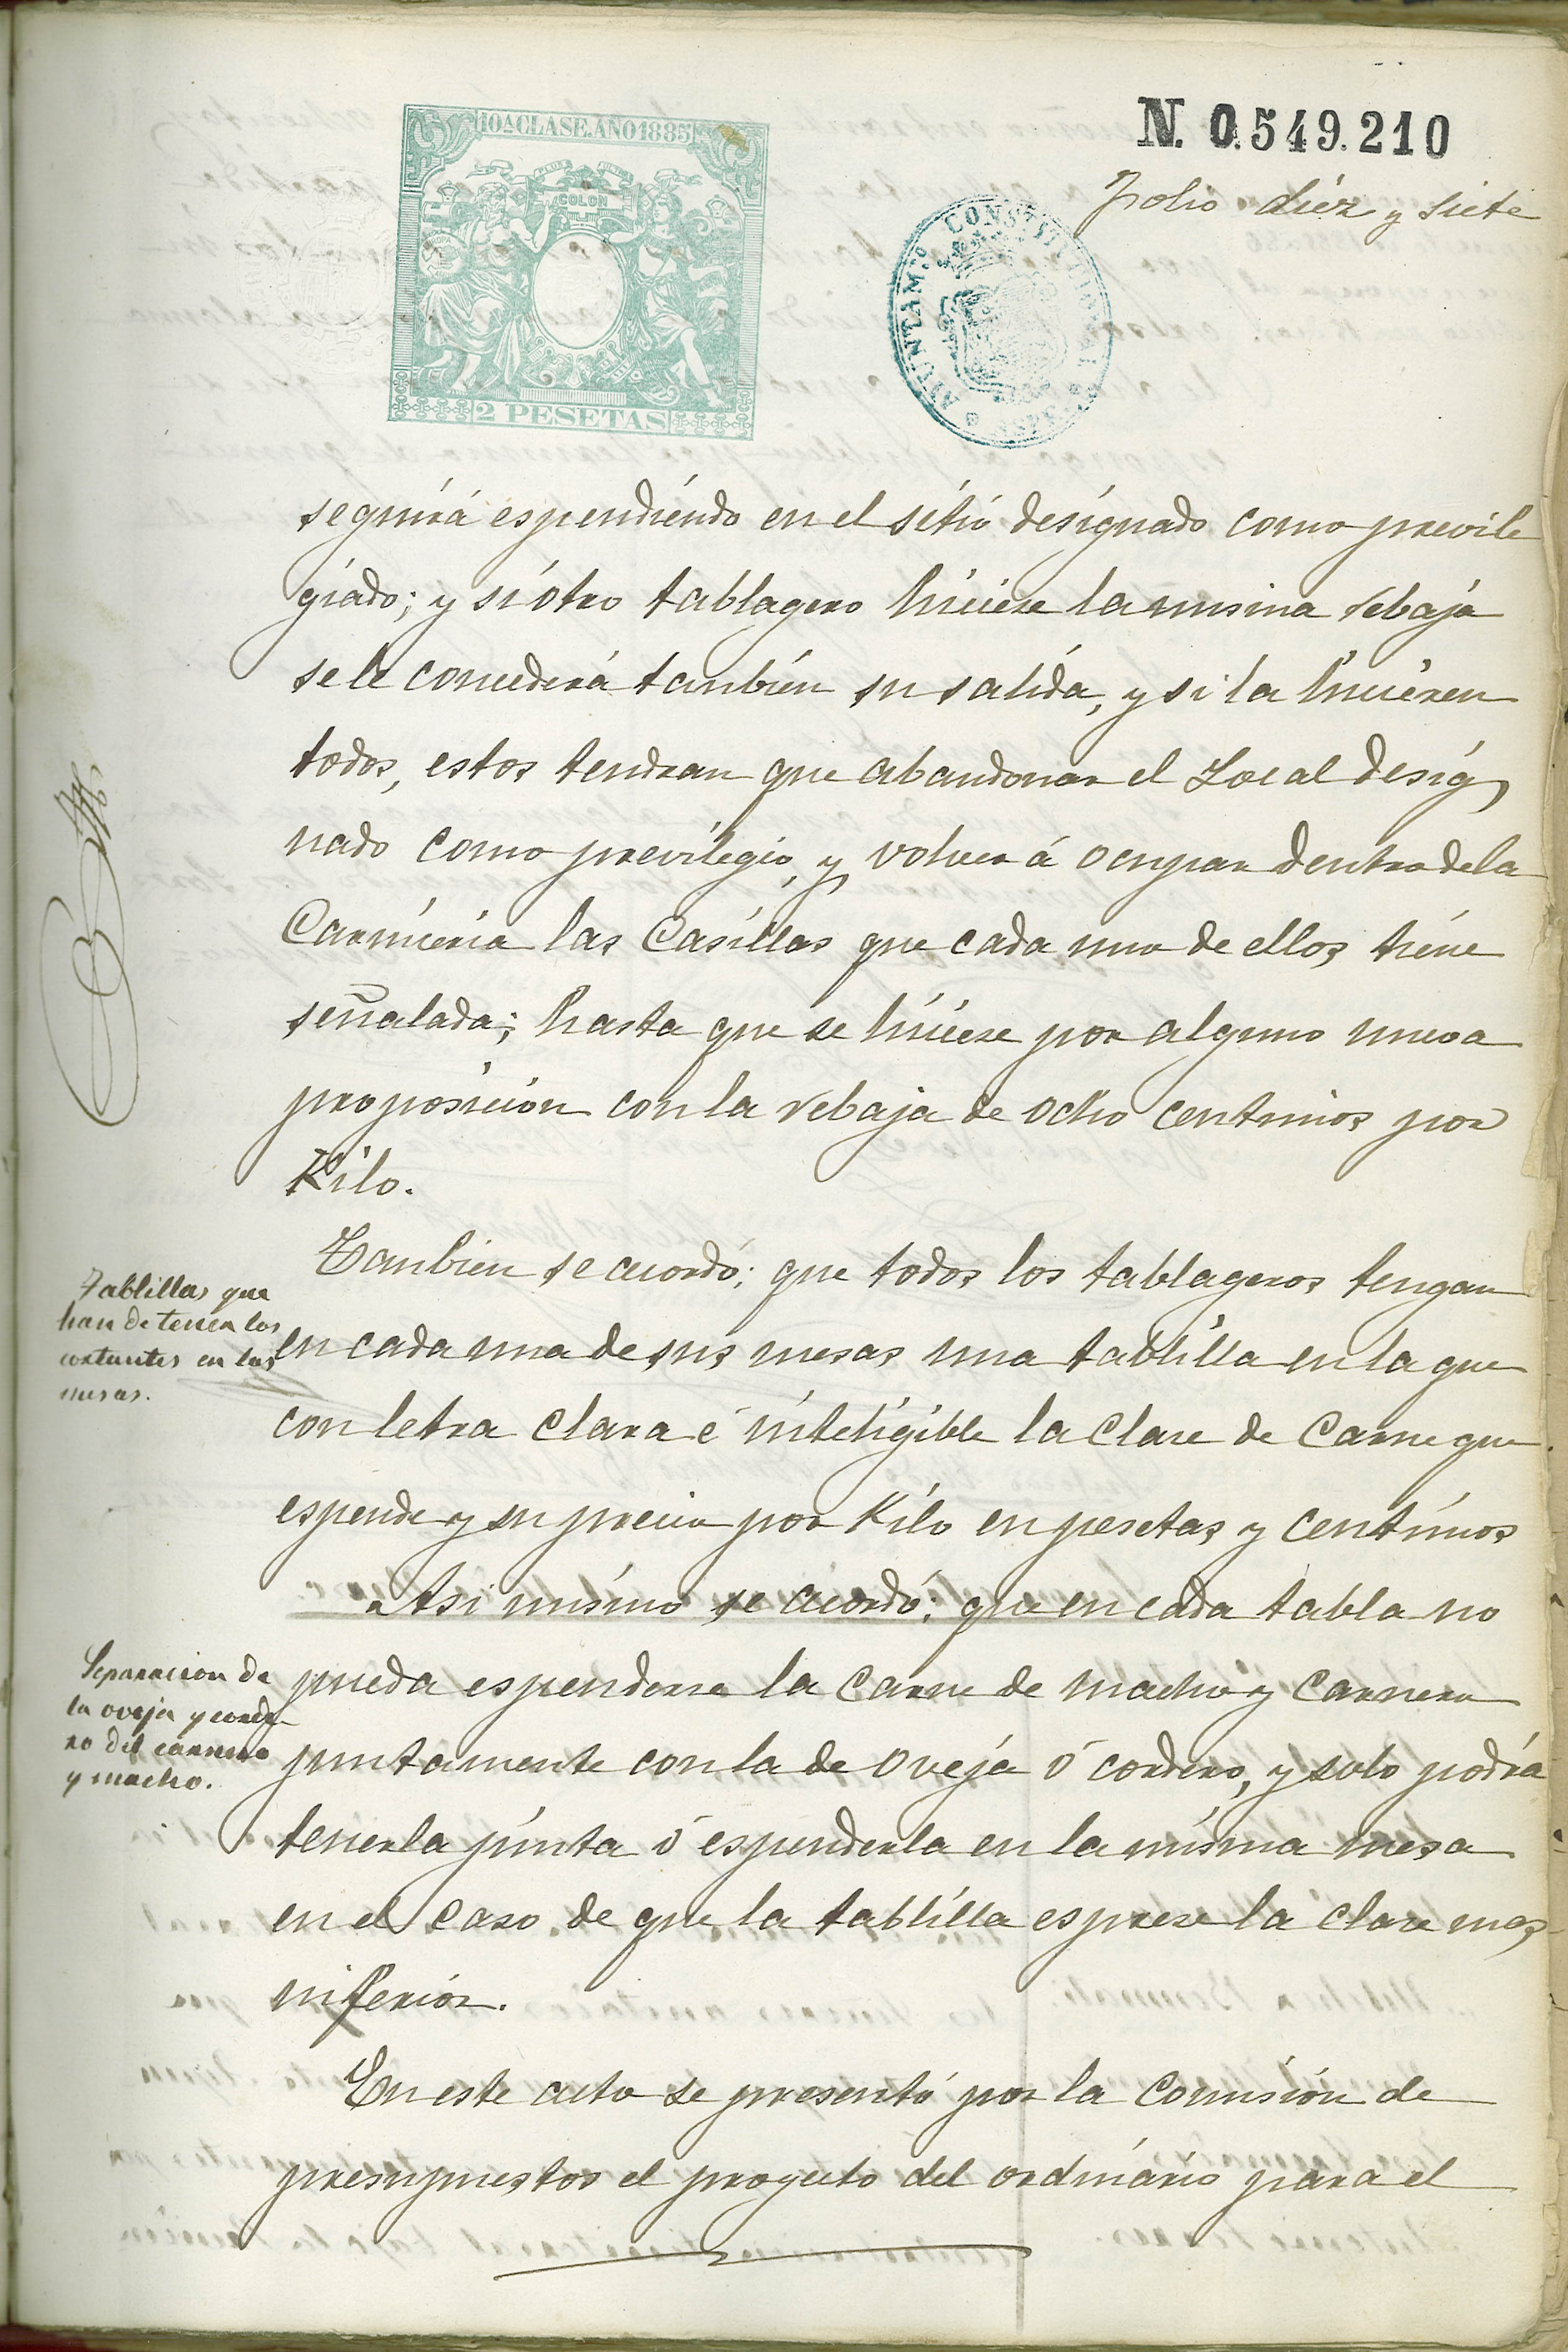 10ª CLASE. AÑO 1885
PLUS ULTRA
COLON
2 PESETAS
N. 0.549.210
Folio diez y siete
AYUNTAM.º CONSTITUCIONAL
seguirá espendiendo en el sitio designado como previle
giado; y si otro tablagero hiciere la misma rebaja
se le concederá tanbién su salida, y si la hicieren
todos, estos tendran que abandonar el Local desig
nado como previlegio, y volver á ocupar dentro de la
Carniceria las Casillas que cada uno de ellos tiene
señalada; hasta que se hiciere por alguno nueva
proposición con la rebaja de ocho centimos por
Kilo.
Tanbien se acordó: que todos los tablageros tengan
Tablillas que
han de tener los
cortantes en las
mesas.
en cada una de sus mesas una tablilla en la que
con letra clara é inteligible la clase de Carne que
espende y su precio por Kilo en pesetas y centimos
Asi mismo se acordó: que en cada tabla no
Separacion de
la oveja y corde-
ro del carnero
y macho.
pueda espenderse la carne de macho y carnero
juntamente con la de oveja ó cordero, y solo podrá
tenerla junta ó espenderla en la misma mesa
en el caso de que la tablilla esprese la clase mas
inferior.
En este acto se presentó por la Comisión de
presupuestos el proyecto del ordinario para el